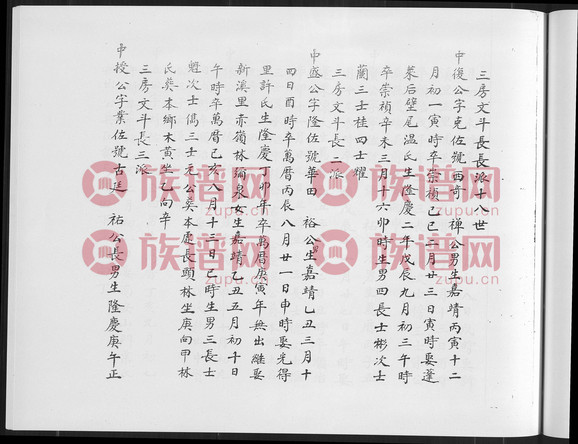 三房文斗長長派十八世
中復公字克佐號西奇 禪公男生嘉靖丙寅十二
月初一寅時卒崇禎己巳二月廿三日寅時娶蓬
萊后壁尾温氏生隆慶二年戊辰九月初三午時
卒崇禎辛未三月十六卯時生男四長士彬次士
蘭三士桂四士耀
三房文斗長二派
中盛公字隆佐號華田 裕公生嘉靖乙丑三月十
四日酉時卒萬曆丙辰八月廿一日申時娶光得
里許氏生隆慶丁卯年卒萬曆庚寅年無出繼娶
新溪里赤嶺林瀰泉女生嘉靖乙丑五月初十日
午時卒萬曆己亥八月十三日巳時生男三長士
魁次士僞三士元公葵本處長頭林坐庚向甲林
氏葵本鄉木黃坐乙向辛
三房文斗長三派
中授公字業佐號古廷 祐公長男生隆慶庚午正
族譜网
www.zupu.cn
族譜网
zupu.cn
族譜网
zupu.cn
族譜网
www.zupu.cn
族譜网
zupu.cn
族譜网
zupu.cn